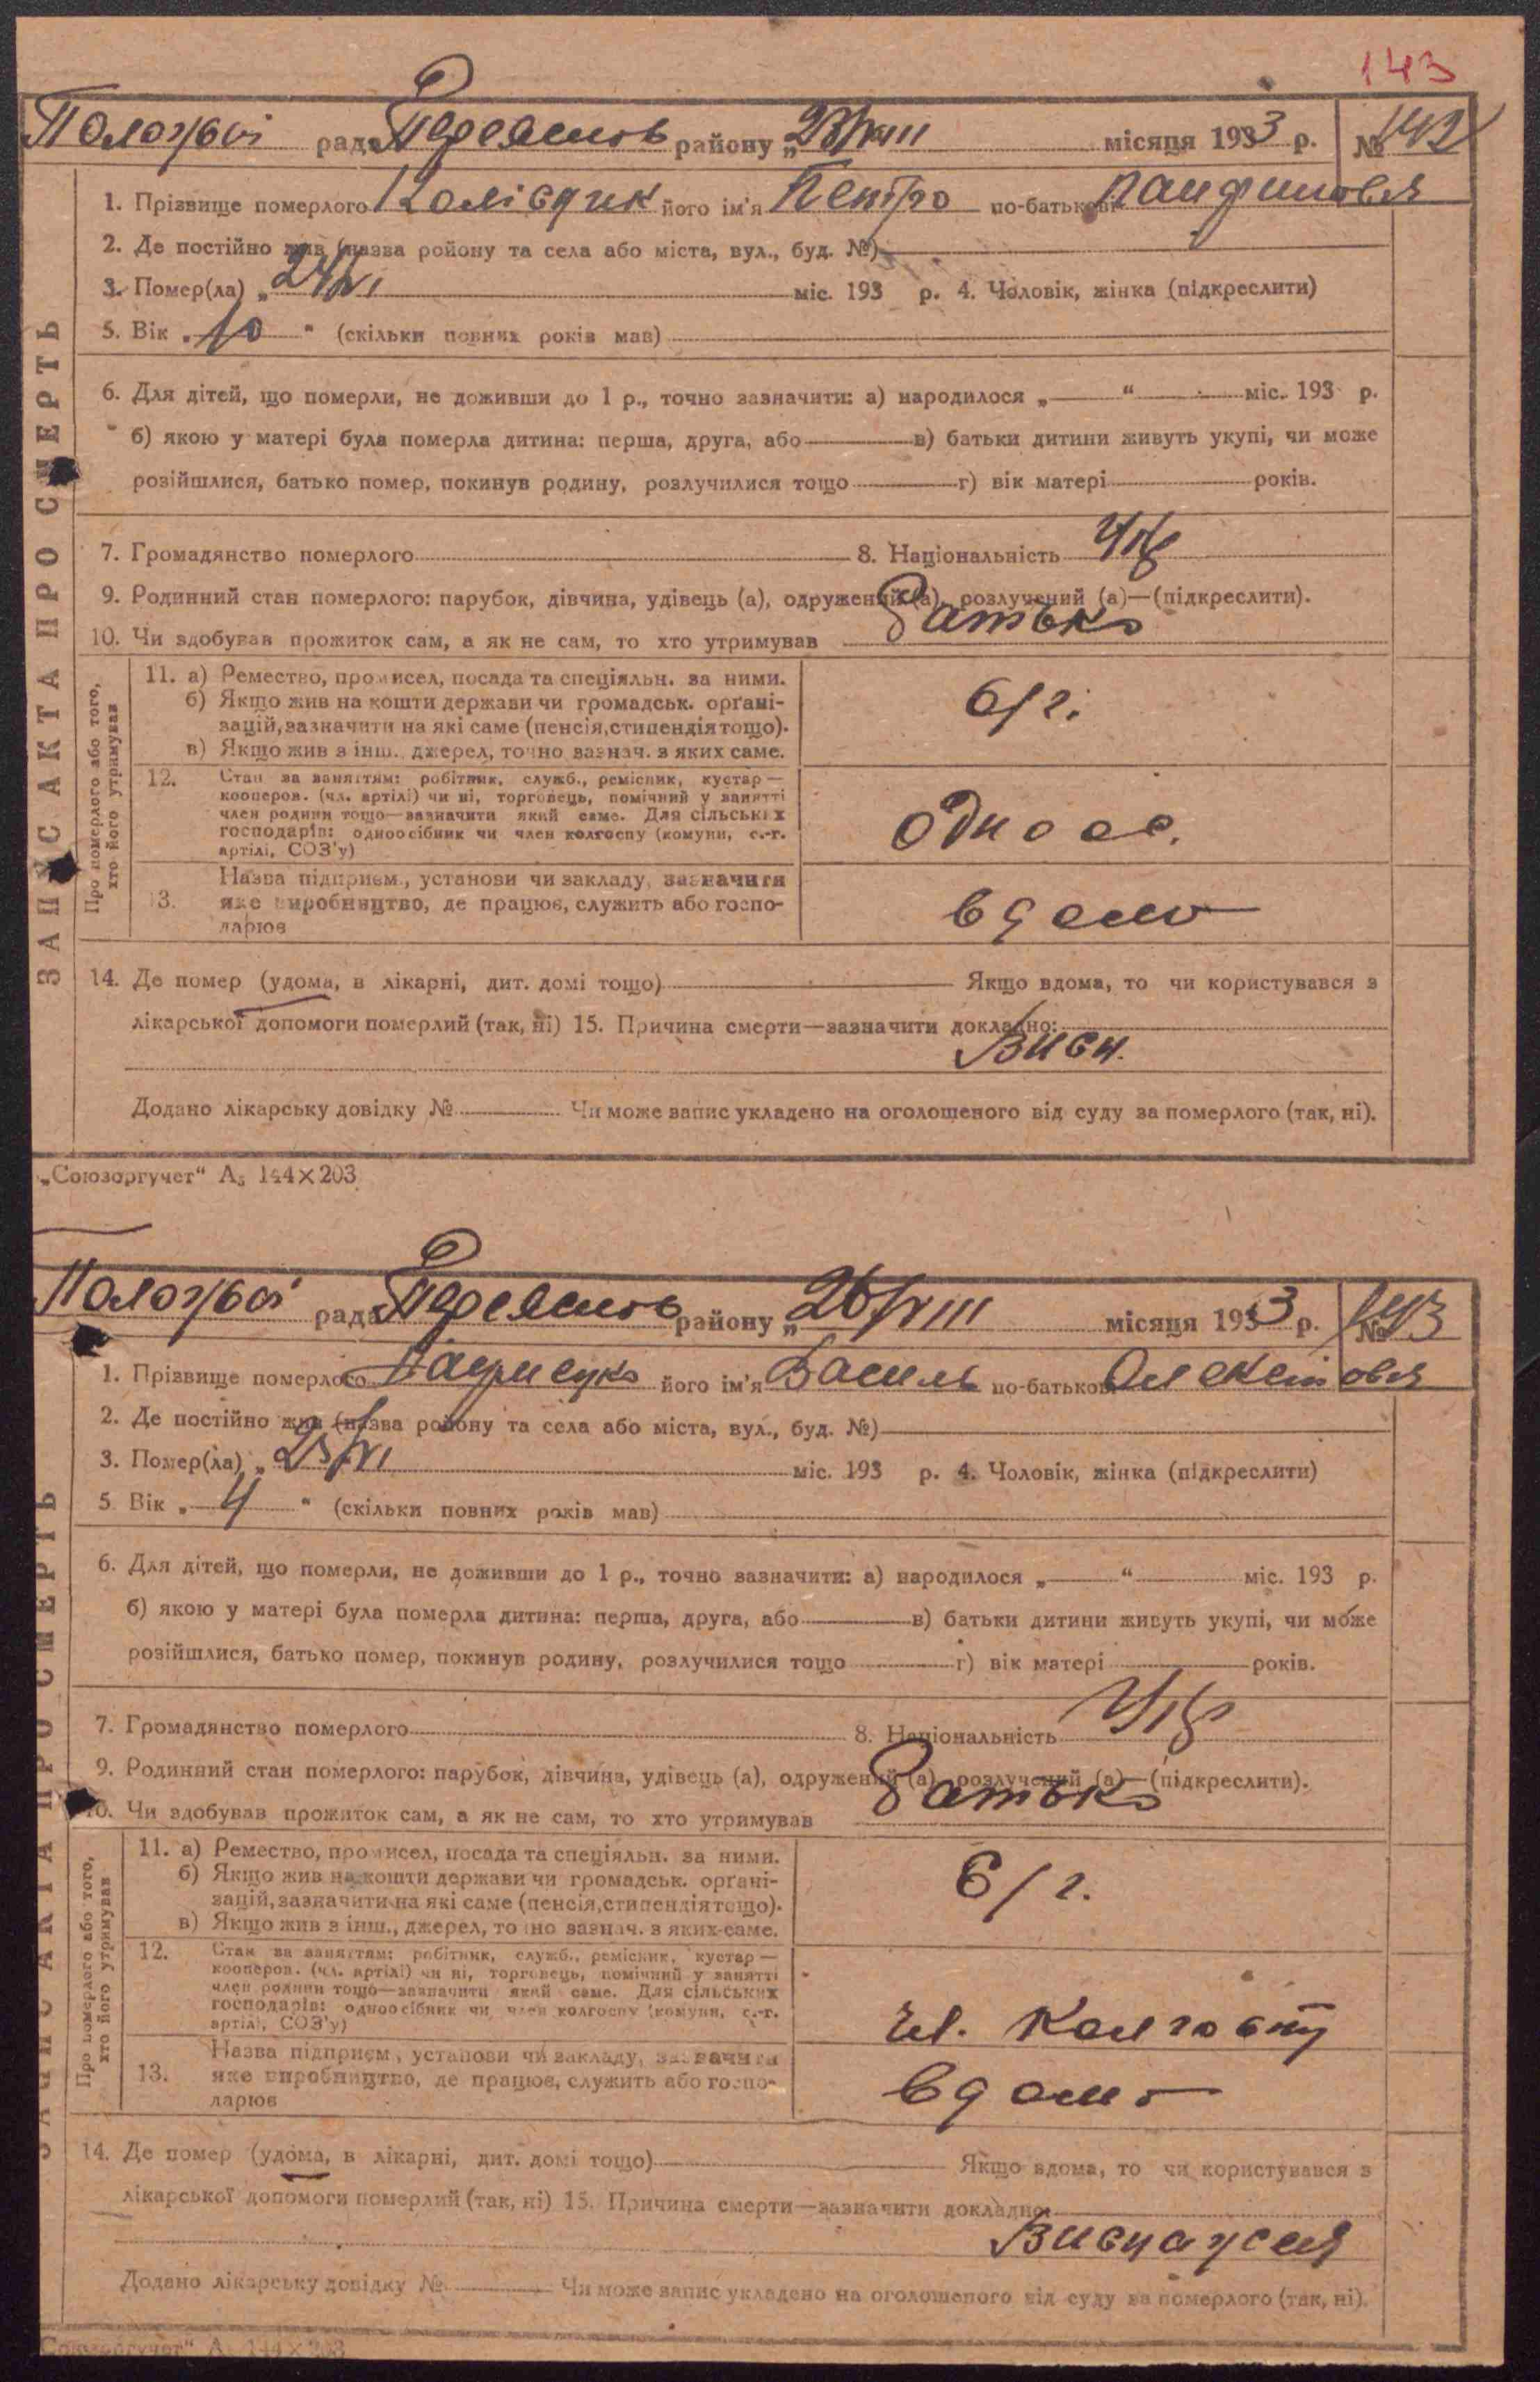 143
рада Переяслов району „23/VIII місяця 1933 р. № 142
1. Прізвище померлого його ім'я Петро по-батькові
2. Де постійно жив (назва ройону та села або міста, вул., буд. №)
3. Помер(ла) „ 24/VI міс. 193 р. 4. Чоловік, жінка (підкреслити)
5. Вік „ 10 “ (скільки повних років мав)
6. Для дітей, що померли, не доживши до 1 р., точно зазначити: а) народилося „ “ міс. 193 р.
б) якою у матері була померла дитина: перша, друга, або в) батьки дитини живуть укупі, чи може
розійшлися, батько помер, покинув родину, розлучилися тощо г) вік матері років.
7. Громадянство померлого 8. Національність Укр
9. Родинний стан померлого: парубок, дівчина, удівець (а), одружений (а), розлучений (а)—(підкреслити).
10. Чи здобував прожиток сам, а як не сам, то хто утримував батько
ЗАПИС АКТА ПРО СМЕРТЬ
Про померлого або того, хто його утримував
11. а) Ремество, промисел, посада та спеціяльн. за ними.
б) Якщо жив на кошти держави чи громадськ. орґані-
зацій, зазначити на які саме (пенсія, стипендія тощо).
в) Якщо жив з інш. джерел, точно зазнач. з яких саме.
с/г.
12. Стан за заняттям: робітник, служб., ремісник, кустар—
кооперов. (чл. артілі) чи ні, торговець, помічний у занятті
член родини тощо—зазначити який саме. Для сільських
господарів: одноосібник чи член колгоспу (комуни, с.-г.
артілі, СОЗ'у)
одноос.
13. Назва підприєм., установи чи закладу, зазначити
яке виробництво, де працює, служить або госпо-
дарює
вдома
14. Де помер (удома, в лікарні, дит. домі тощо) Якщо вдома, то чи користувався з
лікарської допомоги померлий (так, ні) 15. Причина смерти—зазначити докладно:
Висн.
Додано лікарську довідку № Чи може запис укладено на оголошеного від суду за померлого (так, ні).
„Союзоргучет“ А₅ 144×203
рада Переяслов району „26/VIII місяця 1933 р. № 143
1. Прізвище померлого його ім'я Василь по-батькові
2. Де постійно жив (назва ройону та села або міста, вул., буд. №)
3. Помер(ла) „ 23/VI міс. 193 р. 4. Чоловік, жінка (підкреслити)
5. Вік „ 4 “ (скільки повних років мав)
6. Для дітей, що померли, не доживши до 1 р., точно зазначити: а) народилося „ “ міс. 193 р.
б) якою у матері була померла дитина: перша, друга, або в) батьки дитини живуть укупі, чи може
розійшлися, батько помер, покинув родину, розлучилися тощо г) вік матері років.
7. Громадянство померлого 8. Національність Укр
9. Родинний стан померлого: парубок, дівчина, удівець (а), одружений (а), розлучений (а)—(підкреслити).
10. Чи здобував прожиток сам, а як не сам, то хто утримував батько
ЗАПИС АКТА ПРО СМЕРТЬ
Про померлого або того, хто його утримував
11. а) Ремество, промисел, посада та спеціяльн. за ними.
б) Якщо жив на кошти держави чи громадськ. орґані-
зацій, зазначити на які саме (пенсія, стипендія тощо).
в) Якщо жив з інш., джерел, точно зазнач. з яких саме.
с/г.
12. Стан за заняттям: робітник, служб., ремісник, кустар—
кооперов. (чл. артілі) чи ні, торговець, помічний у занятті
член родини тощо—зазначити який саме. Для сільських
господарів: одноосібник чи член колгоспу (комуни, с.-г.
артілі, СОЗ'у)
чл. колгоспу
13. Назва підприєм., установи чи закладу, зазначити
яке виробництво, де працює, служить або госпо-
дарює
вдома
14. Де помер (удома, в лікарні, дит. домі тощо) Якщо вдома, то чи користувався з
лікарської допомоги померлий (так, ні) 15. Причина смерти—зазначити докладно:
Виснаженя
Додано лікарську довідку № Чи може запис укладено на оголошеного від суду за померлого (так, ні).
„Союзоргучет“ А₅ 144×203